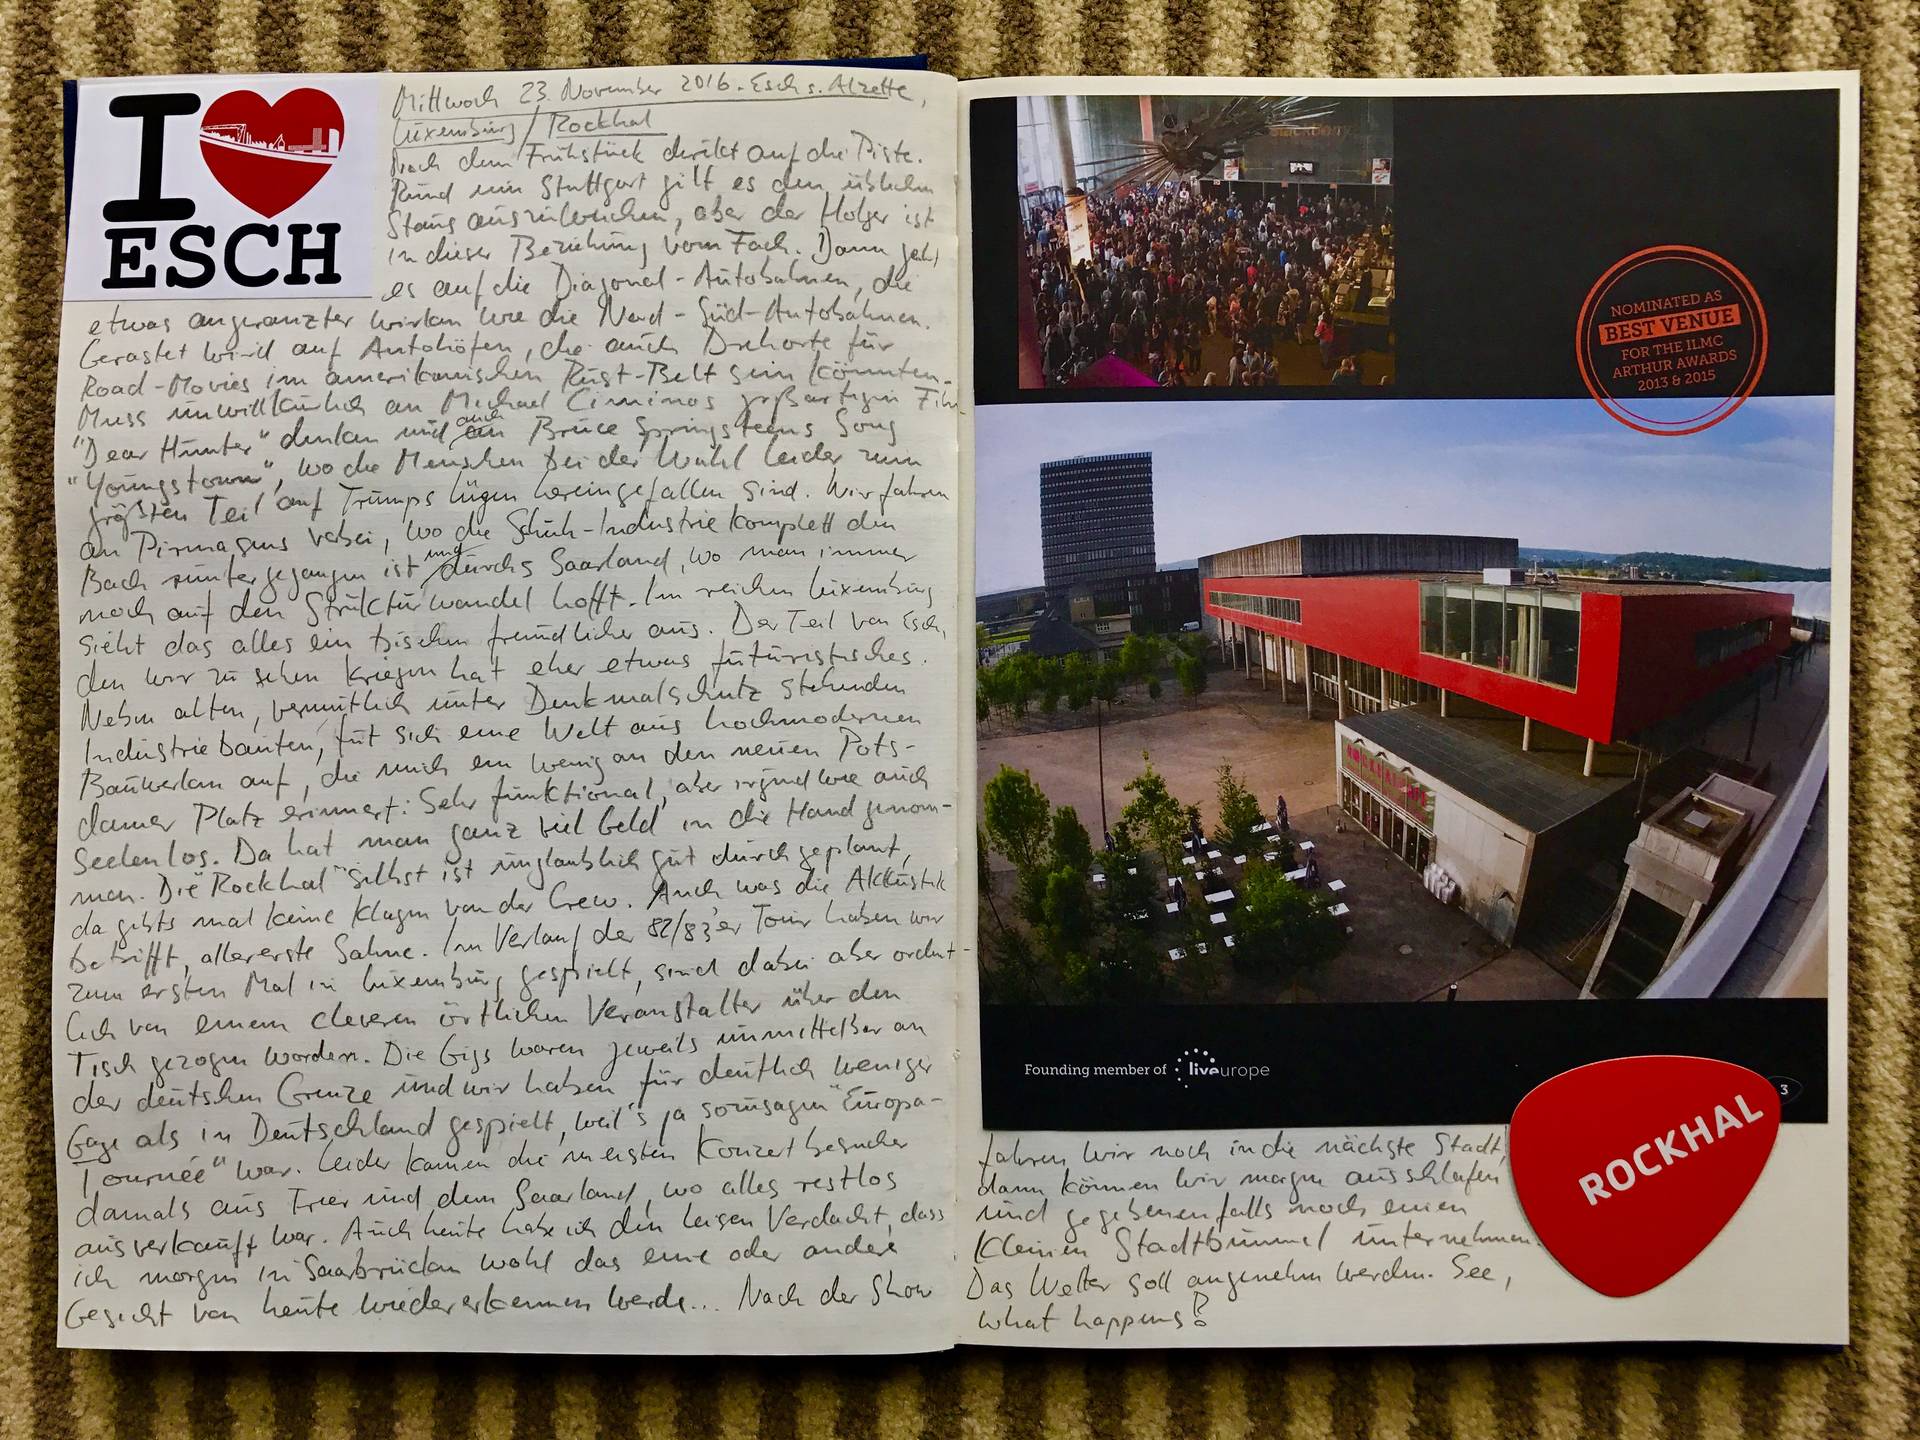 I
ESCH
Mittwoch 23. November 2016. Esch s. Alzette,
Luxemburg / Rockhal
Nach dem Frühstück direkt auf die Piste.
Rund um Stuttgart gilt es den üblichen
Staus auszuweichen, aber der Holger ist
in dieser Beziehung vom Fach. Dann geht
es auf die Diagonal-Autobahnen, die
etwas angeranzter wirken wie die Nord-Süd-Autobahnen.
Gerastet wird auf Autohöfen, die auch Drehorte für
Road-Movies im amerikanischen Rust-Belt sein könnten.
Muss unwillkürlich an Michael Ciminos großartigen Film
"Dear Hunter" denken und auch an Bruce Springsteens Song
"Youngstown", wo die Menschen bei der Wahl leider zum
größten Teil auf Trumps Lügen hereingefallen sind. Wir fahren
an Pirmasens vorbei, wo die Schuh-Industrie komplett den
Bach runtergegangen ist und durchs Saarland, wo man immer
noch auf den Strukturwandel hofft. Im reichen Luxemburg
sieht das alles ein bischen freundlicher aus. Der Teil von Esch,
den wir zu sehen kriegen hat eher etwas futuristisches.
Neben alten, vermutlich unter Denkmalschutz stehenden
Industriebauten, tut sich eine Welt aus hochmodernen
Bauwerken auf, die mich ein wenig an den neuen Pots-
damer Platz erinnert: Sehr funktional, aber irgendwie auch
seelenlos. Da hat man ganz viel Geld in die Hand genom-
men. Die "Rockhal" selbst ist unglaublich gut durchgeplant,
da gibts mal keine Klagen von der Crew. Auch was die Akkustik
betrifft, allererste Sahne. Im Verlauf der 82/83'er Tour haben wir
zum ersten Mal in Luxemburg gespielt, sind dabei aber ordent-
lich von einem cleveren örtlichen Veranstalter über den
Tisch gezogen worden. Die Gigs waren jeweils unmittelbar an
der deutschen Grenze und wir haben für deutlich weniger
Gage als in Deutschland gespielt, weil's ja sozusagen "Europa-
Tournée" war. Leider kamen die meisten Konzertbesucher
damals aus Trier und dem Saarland, wo alles restlos
ausverkauft war. Auch heute habe ich den leisen Verdacht, dass
ich morgen in Saarbrücken wohl das eine oder andere
Gesicht von heute wiedererkennen werde... Nach der Show
NOMINATED AS
BEST VENUE
FOR THE ILMC
ARTHUR AWARDS
2013 & 2015
ROCKHALCAFE
Founding member of liveurope
3
ROCKHAL
fahren wir noch in die nächste Stadt,
dann können wir morgen ausschlafen
und gegebenenfalls noch einen
kleinen Stadtbummel unternehmen.
Das Wetter soll angenehm werden. See,
what happens!